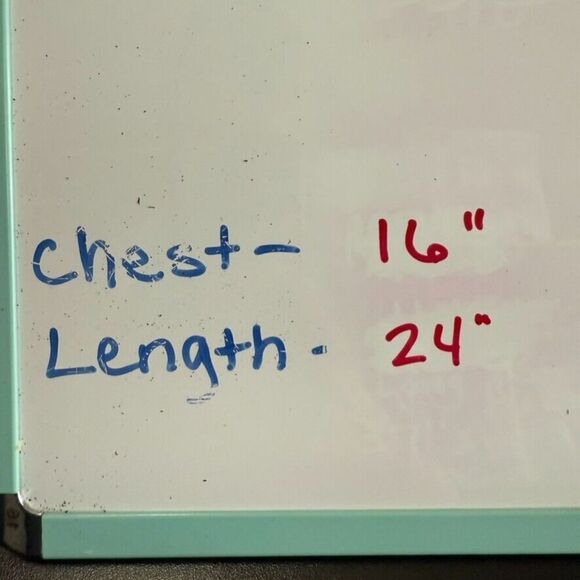 Chest- 16"
Length- 24"